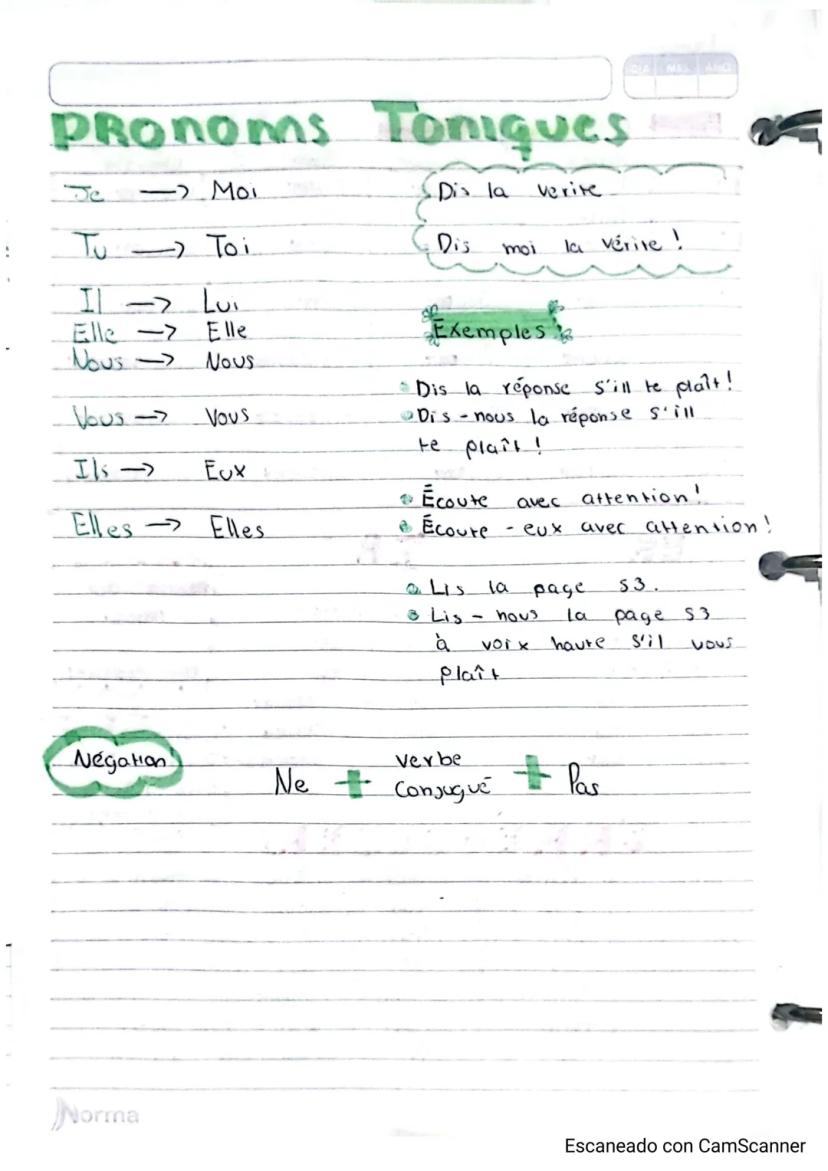 DIA MES AÑO
PRONOMS TONIQUES
Je → Moi
Tu → Toi
Il → Lui
Elle → Elle
Nous → Nous
Vous → Vous
Ils → Eux
Elles → Elles
Dis la verite
Dis moi la vérite !
Exemples :
Dis la réponse s'ill te plaît !
Dis - nous la réponse s'ill
te plaît !
Écoute avec attention !
Écoute - eux avec attention !
Lis la page 53.
Lis - nous la page 53
à voix haute s'il vous
plaît
Négation
Ne + verbe conjugué + Pas
Norma
Escaneado con CamScanner